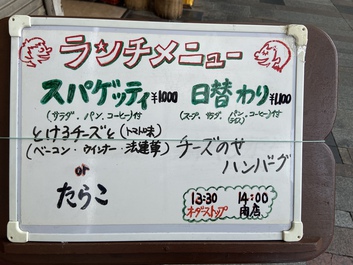 ランチメニュー
スパゲッティ¥1000
(サラダ・パン・コーヒー)付
とけるチーズと(トマト味)
(ベーコン・ウインナー・法連草)
or
たらこ
日替わり¥1,100
(スープ・サラダ・パン・コーヒー)付
ライス
チーズのせ
ハンバーグ
13:30 14:00
オーダーストップ 閉店